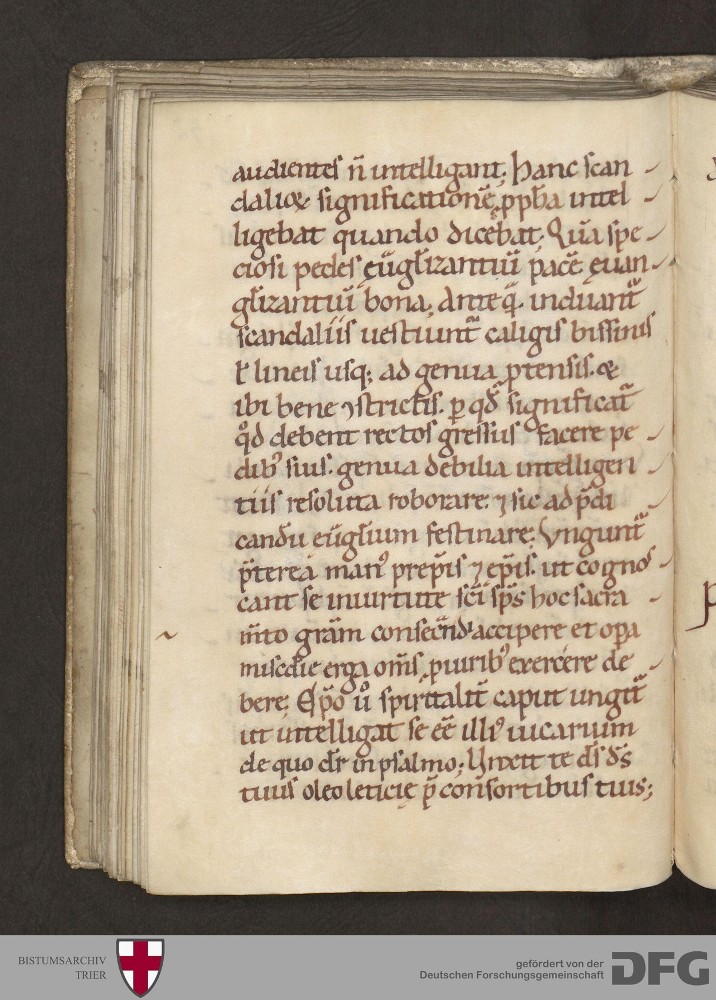 audientes ñ intelligant; hanc scan
dalioꝝ significationē ꝓph̄a intel
ligebat quando dicebat; Quā spe
ciosi pedes eūgl̄izantiū pacē euan
gl̄izantiū bona; Anteq̄ᷓ induant᷑
scandaliis uestiunt᷑ caligis bissinis
ł lineis usq; ad genua ꝓtensis. &
ibi bene ꝯstrictis. ꝑ qd̄ significat᷑
qd̄ debent rectos gressus facere pe
dibꝰ suis. genua debilia intelligen
tiis resoluta roborare; ⁊ sic ad p̄di
candū eūgl̄ium festinare; Ungunt᷑
p̄terea manꝰ prep̄is ⁊ ep̄is. ut cogno
scant se inuirtute sc̄i sp̄s hoc sacra
m̄to gr̄am consecrandi accipere et op̄a
miscd̄ie erga om̄s ꝓ uiribꝰ exercere de
bere; Ep̄o ū spiritalit᷑ caput ungit᷑
ut intelligat se eē illiꝰ uicarium
de quo dr̄ in psalmo; Unxit te d̄s d̄s
tuus oleo leticię p̄ consortibus tuis;
BISTUMSARCHIV
TRIER
gefördert von der
Deutschen Forschungsgemeinschaft
DFG